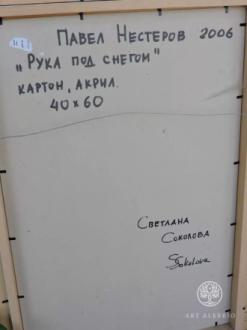 ПАВЕЛ НЕСТЕРОВ 2006
„РУКА ПОД СНЕГОМ"
КАРТОН, АКРИЛ.
40 х 60
СВЕТЛАНА
СОКОЛОВА
SSokolova
ART ALEBRIO